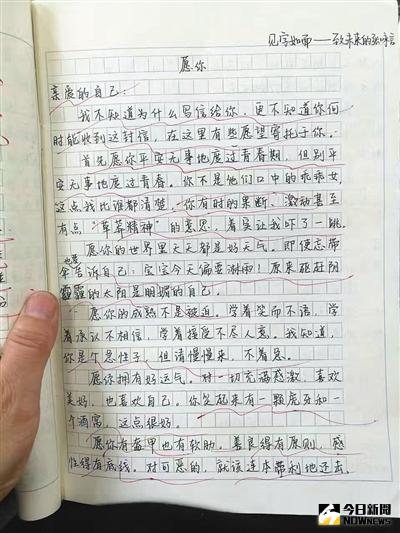 见字如面——致未来的张[?]信
愿你
亲爱的自己：
我不知道为什么写信给你，更不知道你何
时能收到这封信，在这里有些愿望寄托于你。
首先愿你平安无事地度过青春期，但别平
安无事地度过青春。你不是他们口中的乖乖女，
这点我比谁都清楚。你有时的果断、激动甚至
有点“草莽精神”的意思，着实让我吓了一跳。
愿你的世界里天天都是好天气。即便忘带
伞也要告诉自己：宝宝今天偏要淋雨！原来驱赶阴
霾的太阳是明媚的自己。
愿你的成熟不是被迫。学着笑而不语，学
着承认不相信，学着接受不尽人意。我知道，
你是个急性子，但请慢慢来，不着急。
愿你拥有好运气。对一切充满感激，喜欢
美好，也喜欢自己。你笑起来有一颗虎牙和一
个酒窝，这点很好。
愿你有盔甲也有软肋。善良得有原则，感
性得有底线。对可恶的，就该连本带利地还击。
今日新聞
NOWNEWS